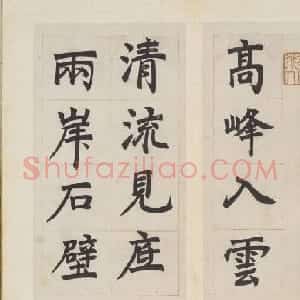 高峰入雲
清流見底
兩岸石壁
Shufaziliao.com